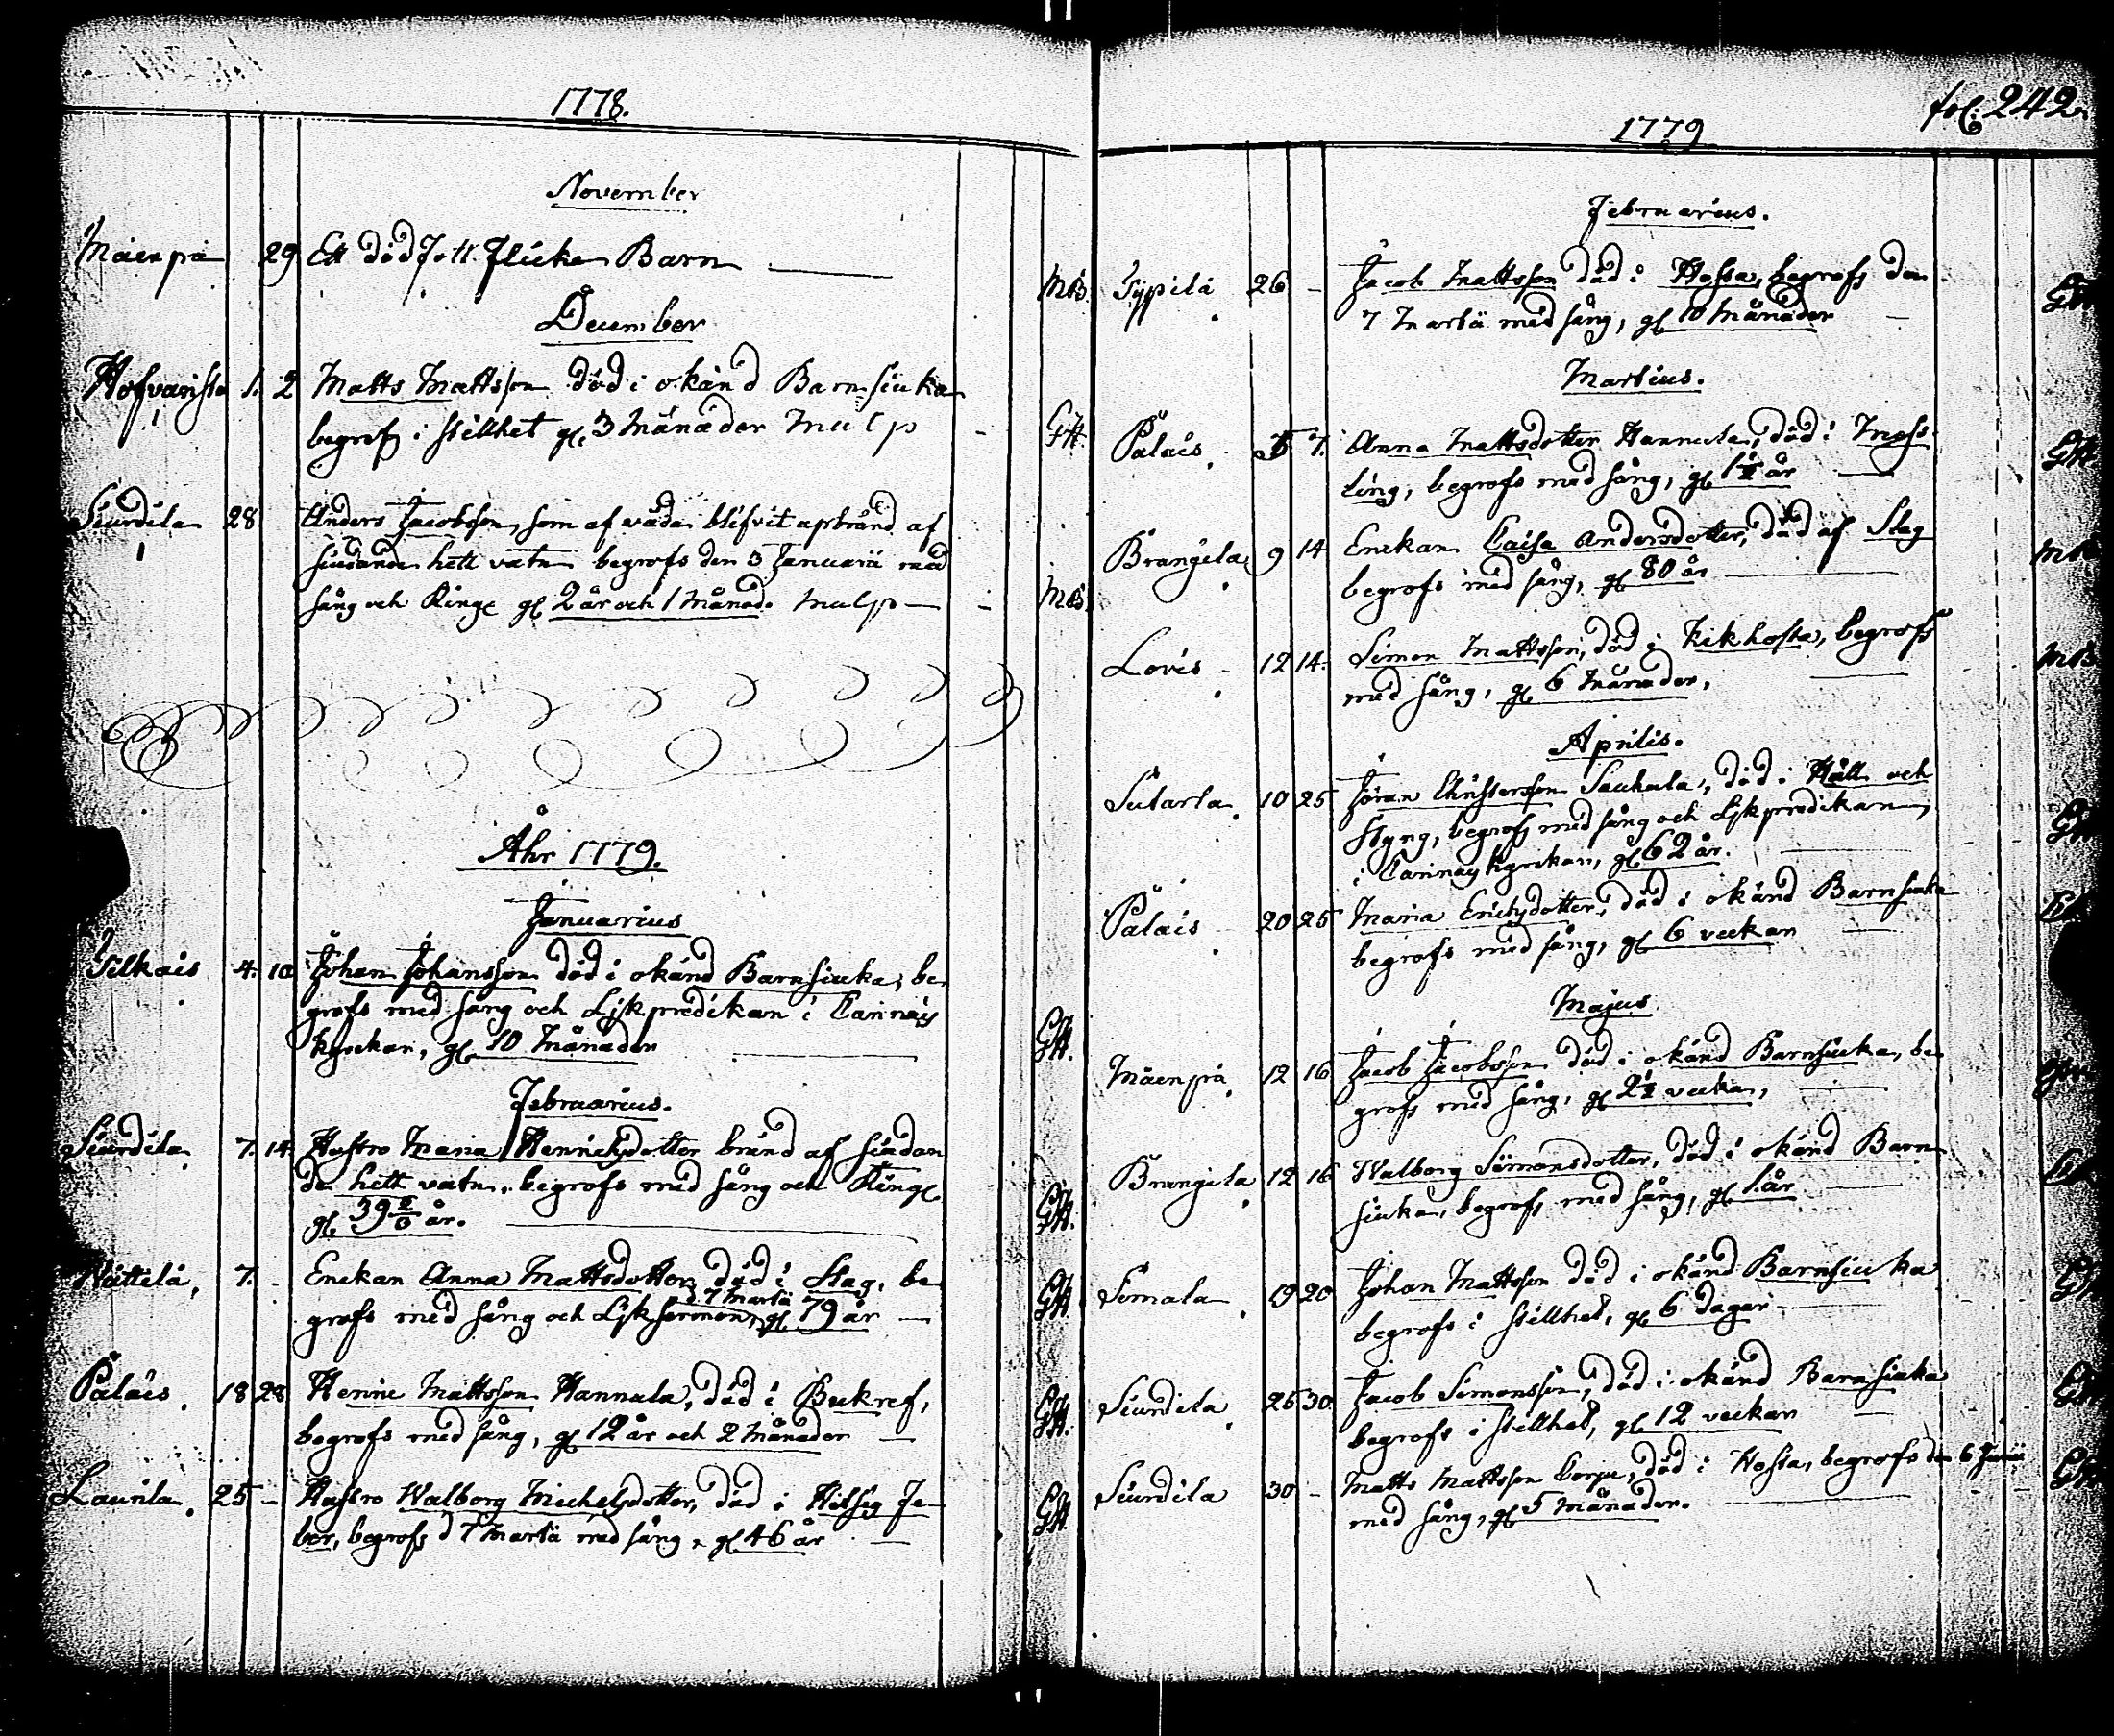 1778.
November
Mäenpä 29 Ett dödfött flicke Barn
MB.
December
Hofvarista 1. 2 Matts Mattsson död i okänd Barnsiuka
begrofs i stillhet gl. 3 Månader
GH.
Siurdila 28 Anders Jacobsson, som af våda blifvit upbränd af
siudande hett vatn begrofs den 3 Januarii med
sång och Ringe gl 2 år och 1 Månad.
MB.
Åhr 1779.
Januarius
Silkais 4. 10 Johan Johansson död i okänd Barnsiuka, be-
grofs med sång och Lijkpredikan i Cannäs
kyrckan, gl 10 Månader
GH.
Februarius.
Siurdila 7. 14. Hustro Maria Henrichsdotter bränd af siudan
de hett vatn, begrofs med sång och Ringe
gl 39 år.
GH.
Nättilä, 7. Enckan Anna Mattsdotter död i Slag, be
d. 7 Martii
grofs med sång och Lijksermon, gl 79 år
GH.
Palais. 18 28 Henric Mattsson Hannula, död i Bukref,
begrofs med sång, gl 12 år och 2 Månader
GH.
Laurila. 25 - Hustro Walborg Michelsdotter, död i Hitsig Fe-
ber, begrofs d 7 Martii med sång, gl 46 år
GH.
fol. 242.
1779
Februarius.
Sypilä 26 - Jacob Mattsson död i Hosta, begrofs den
7 Martii med sång, gl 10 Månader
Martius.
Palais. 5 7. Anna Mattsdotter Hannula, död i Mess-
ling, begrofs med sång, gl 1½ år
GH
Brangila 9 14 Enckan Caisa Andersdotter, död af Slag
begrofs med sång, gl 80 år
MB
Lovis 12 14. Simon Mattsson, död i Kikhosta, begrofs
med sång, gl 6 Månader,
MB
Aprilis.
Sutarla. 10 25 Jöran Christersson Sauhula, död i Håll och
Styng, begrofs med sång och Lijkpredikan,
i Cannäs kyrckan, gl 62 år.
Palais 20 25 Maria Erichsdotter, död i okänd Barnsiuka
begrofs med sång, gl 6 veckor
Majus
Mäenpä, 12 16 Jacob Jacobsson död i okänd Barnsiuka, be-
grofs med sång, gl 2½ vecka,
Brangila 12 16 Walborg Simonsdotter, död i okänd Barn
siuka, begrofs med sång, gl 1 år
Simala 19 20 Johan Mattsson död i okänd Barnsiuka
begrofs i stillhet, gl 6 dagar
Siurdila 26 30. Jacob Simonsson, död i okänd Barnsiuka
begrofs i stillhet, gl 12 veckor
Siurdila 30 - Matts Mattsson död i Hosta, begrofs den 6 Junii
med sång, gl 5 Månader.